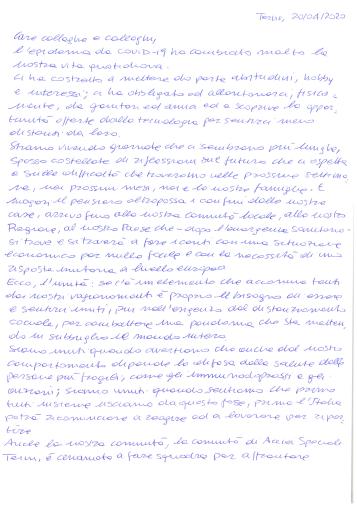 Terni, 20/04/2020
Care colleghe e colleghi,
l'epidemia da COVID-19 ha cambiato molto la
nostra vita quotidiana.
Ci ha costretto a mettere da parte abitudini, hobby
e interessi; ci ha obbligato ad allontanarci, fisica-
mente, da genitori ed amici ed a scoprire le oppor-
tunità offerte dalla tecnologia per sentirci meno
distanti da loro.
Stiamo vivendo giornate che ci sembrano più lunghe,
spesso costellate di riflessioni sul futuro che ci aspetta
e sulle difficoltà che troveremo nelle prossime settima-
ne, nei prossimi mesi, noi e le nostre famiglie. E
magari il pensiero oltrepassa i confini delle nostre
case, arriva fino alla nostra comunità locale, alla nostra
Regione, al nostro Paese che - dopo l'emergenza sanitaria -
si trova e si troverà a fare i conti con una situazione
economica per nulla facile e con la necessità di una
risposta unitaria a livello europeo.
Ecco, l'unità: se c'è un elemento che accomuna tanti
dei nostri ragionamenti è proprio il bisogno di essere
e sentirci uniti, pur nell'urgenza del distanziamento
sociale, per combattere una pandemia che sta metten-
do in subbuglio il mondo intero.
Siamo uniti quando avvertiamo che anche dal nostro
comportamento dipende la difesa della salute delle
persone più fragili, come gli immunodepressi e gli
anziani; siamo uniti quando sentiamo che prima
tutti insieme usciamo da questa fase, prima l'Italia
potrà ricominciare a reagire ed a lavorare per ripar-
tire.
Anche la nostra comunità, la comunità di Acciai Speciali
Terni, è chiamata a fare squadra per affrontare